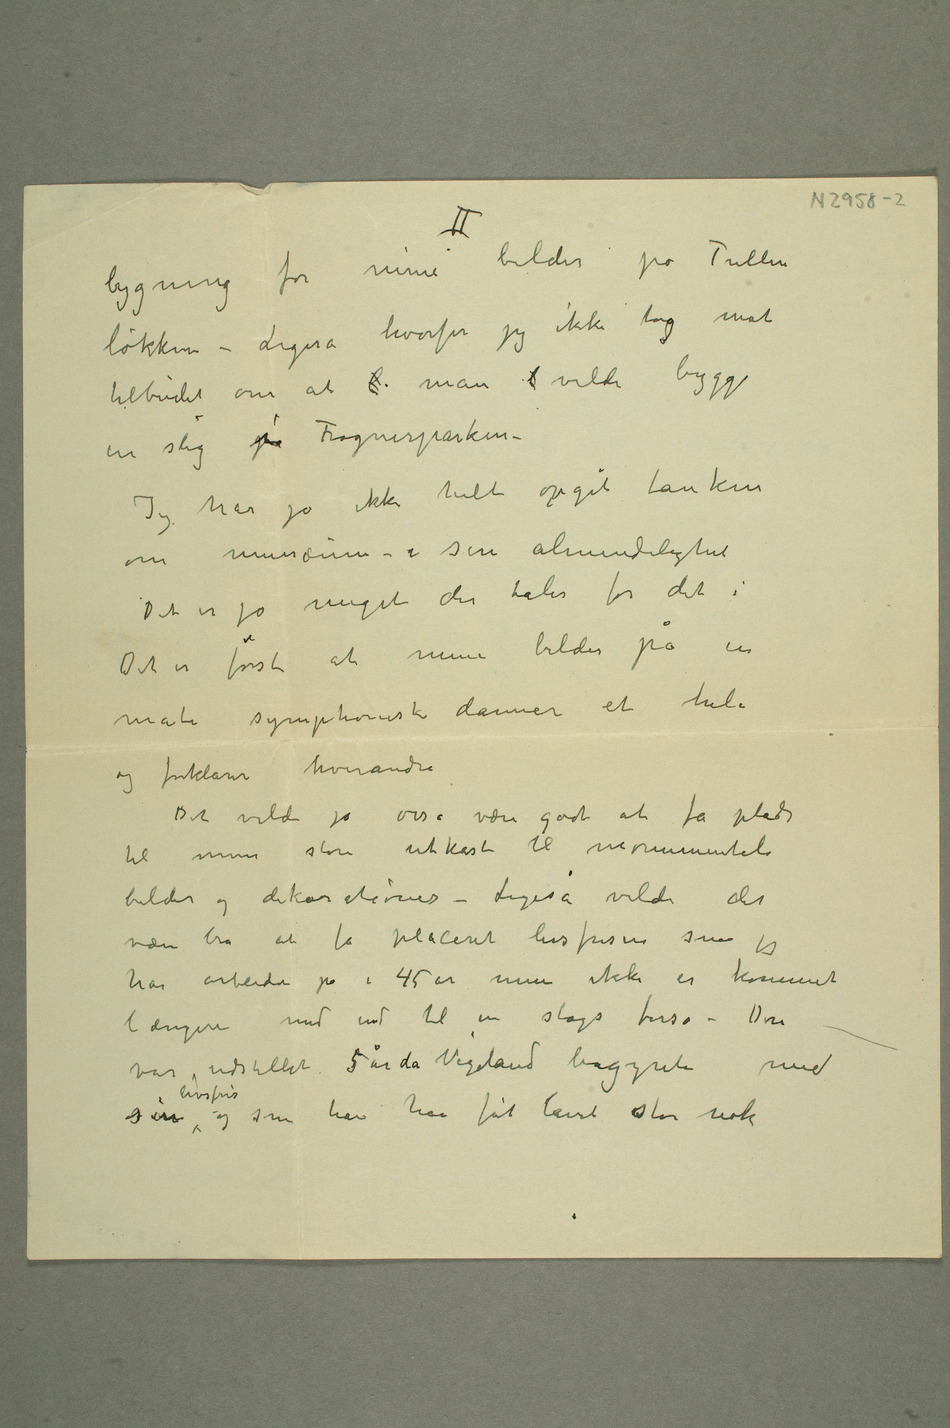 N 2958-2
II
bygning for mine bilder på Tullin
løkken – Ligeså hvorfor jeg ikke tog mot
tilbudet om at man vilde bygge
en slig på Frognerparken –
Jeg har jo ikke helt opgit tanken
om museum – i sin almindelighet
Det er jo meget der taler for det i
Det er først at mine bilder på en
måte symphonisk danner et hele
og forklarer hverandre
Det vilde jo også være godt at få plads
til mine store utkast til monumentale
bilder og dekorationer – Ligeså vilde det
være bra at få placeret livsfrisen som jeg
har arbeidet på i 45 år men ikke er kommet
længere med end til en slags torso – Den
var udstillet 5 år da Vigeland begynte med
sin livsfris og som han har fåt laget stor nok